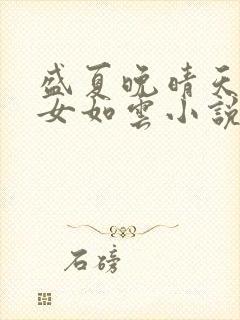 盛夏晚晴天
女如雲小說
石磅